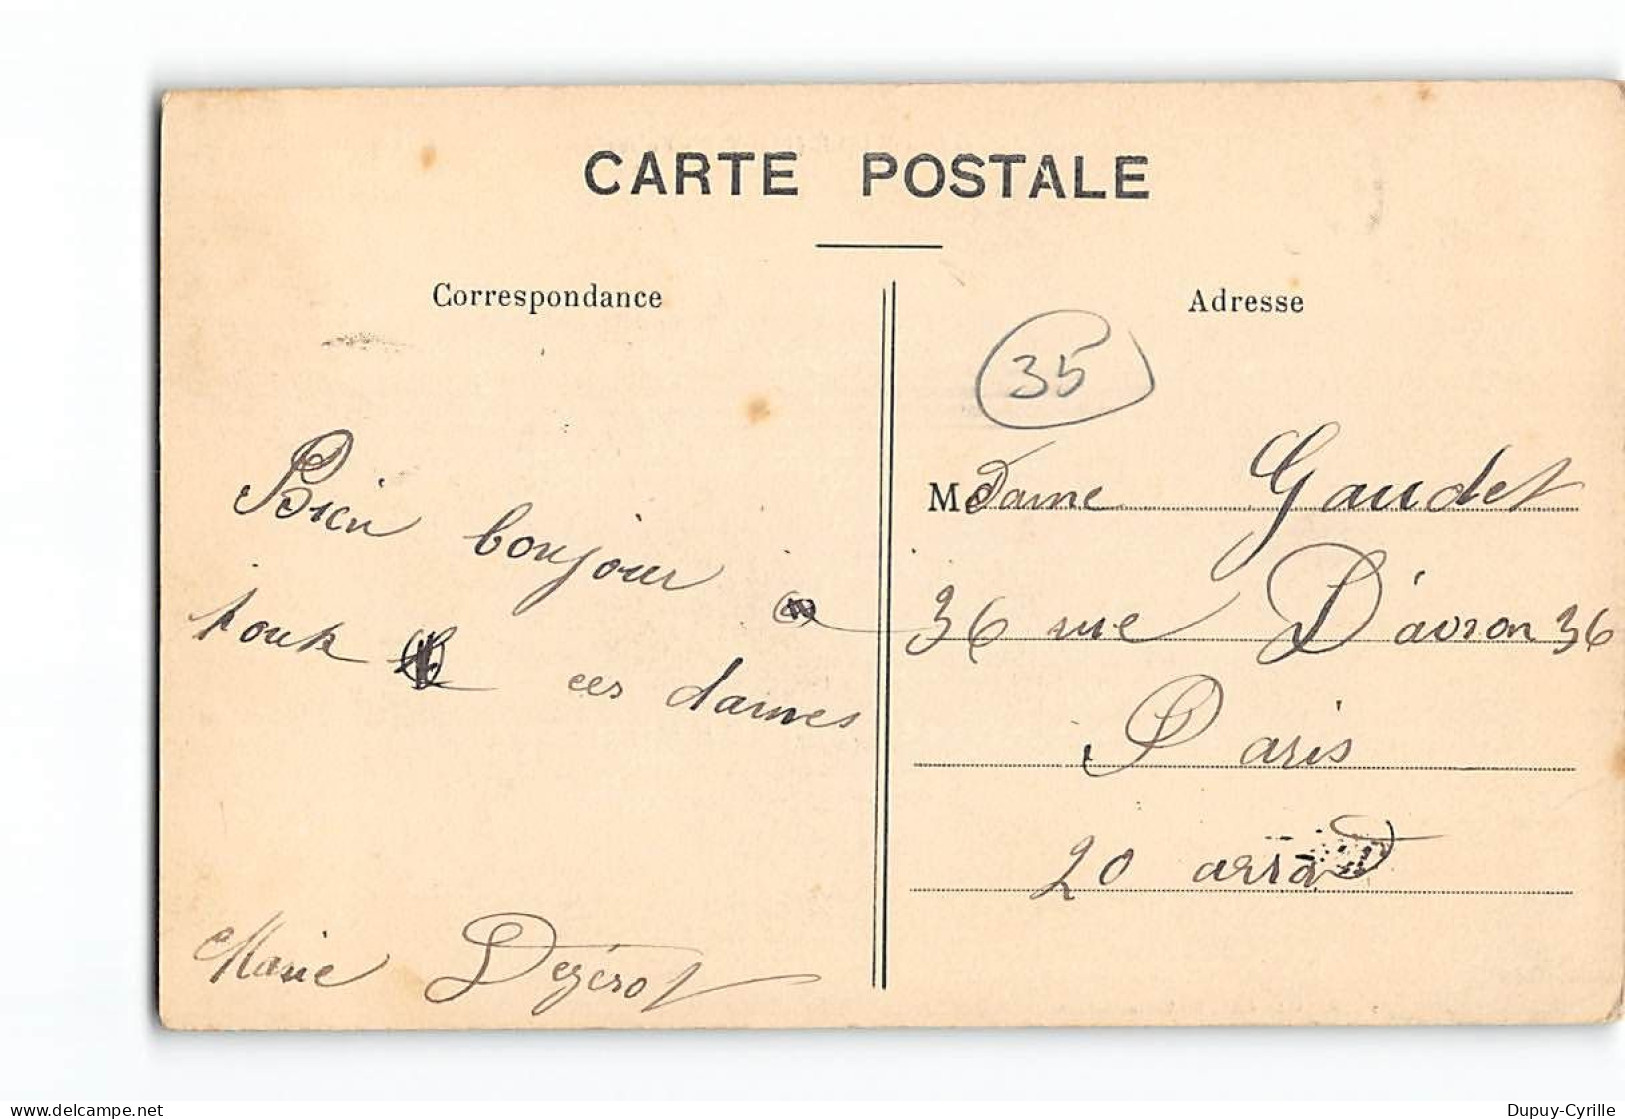 CARTE POSTALE
Correspondance
Bien bonjour a
toute ces dames
Marie Dezerot
Adresse
35
Madame Gaudet
36 rue D'avron 36
Paris
20 arrd
delcampe.net
Dupuy-Cyrille